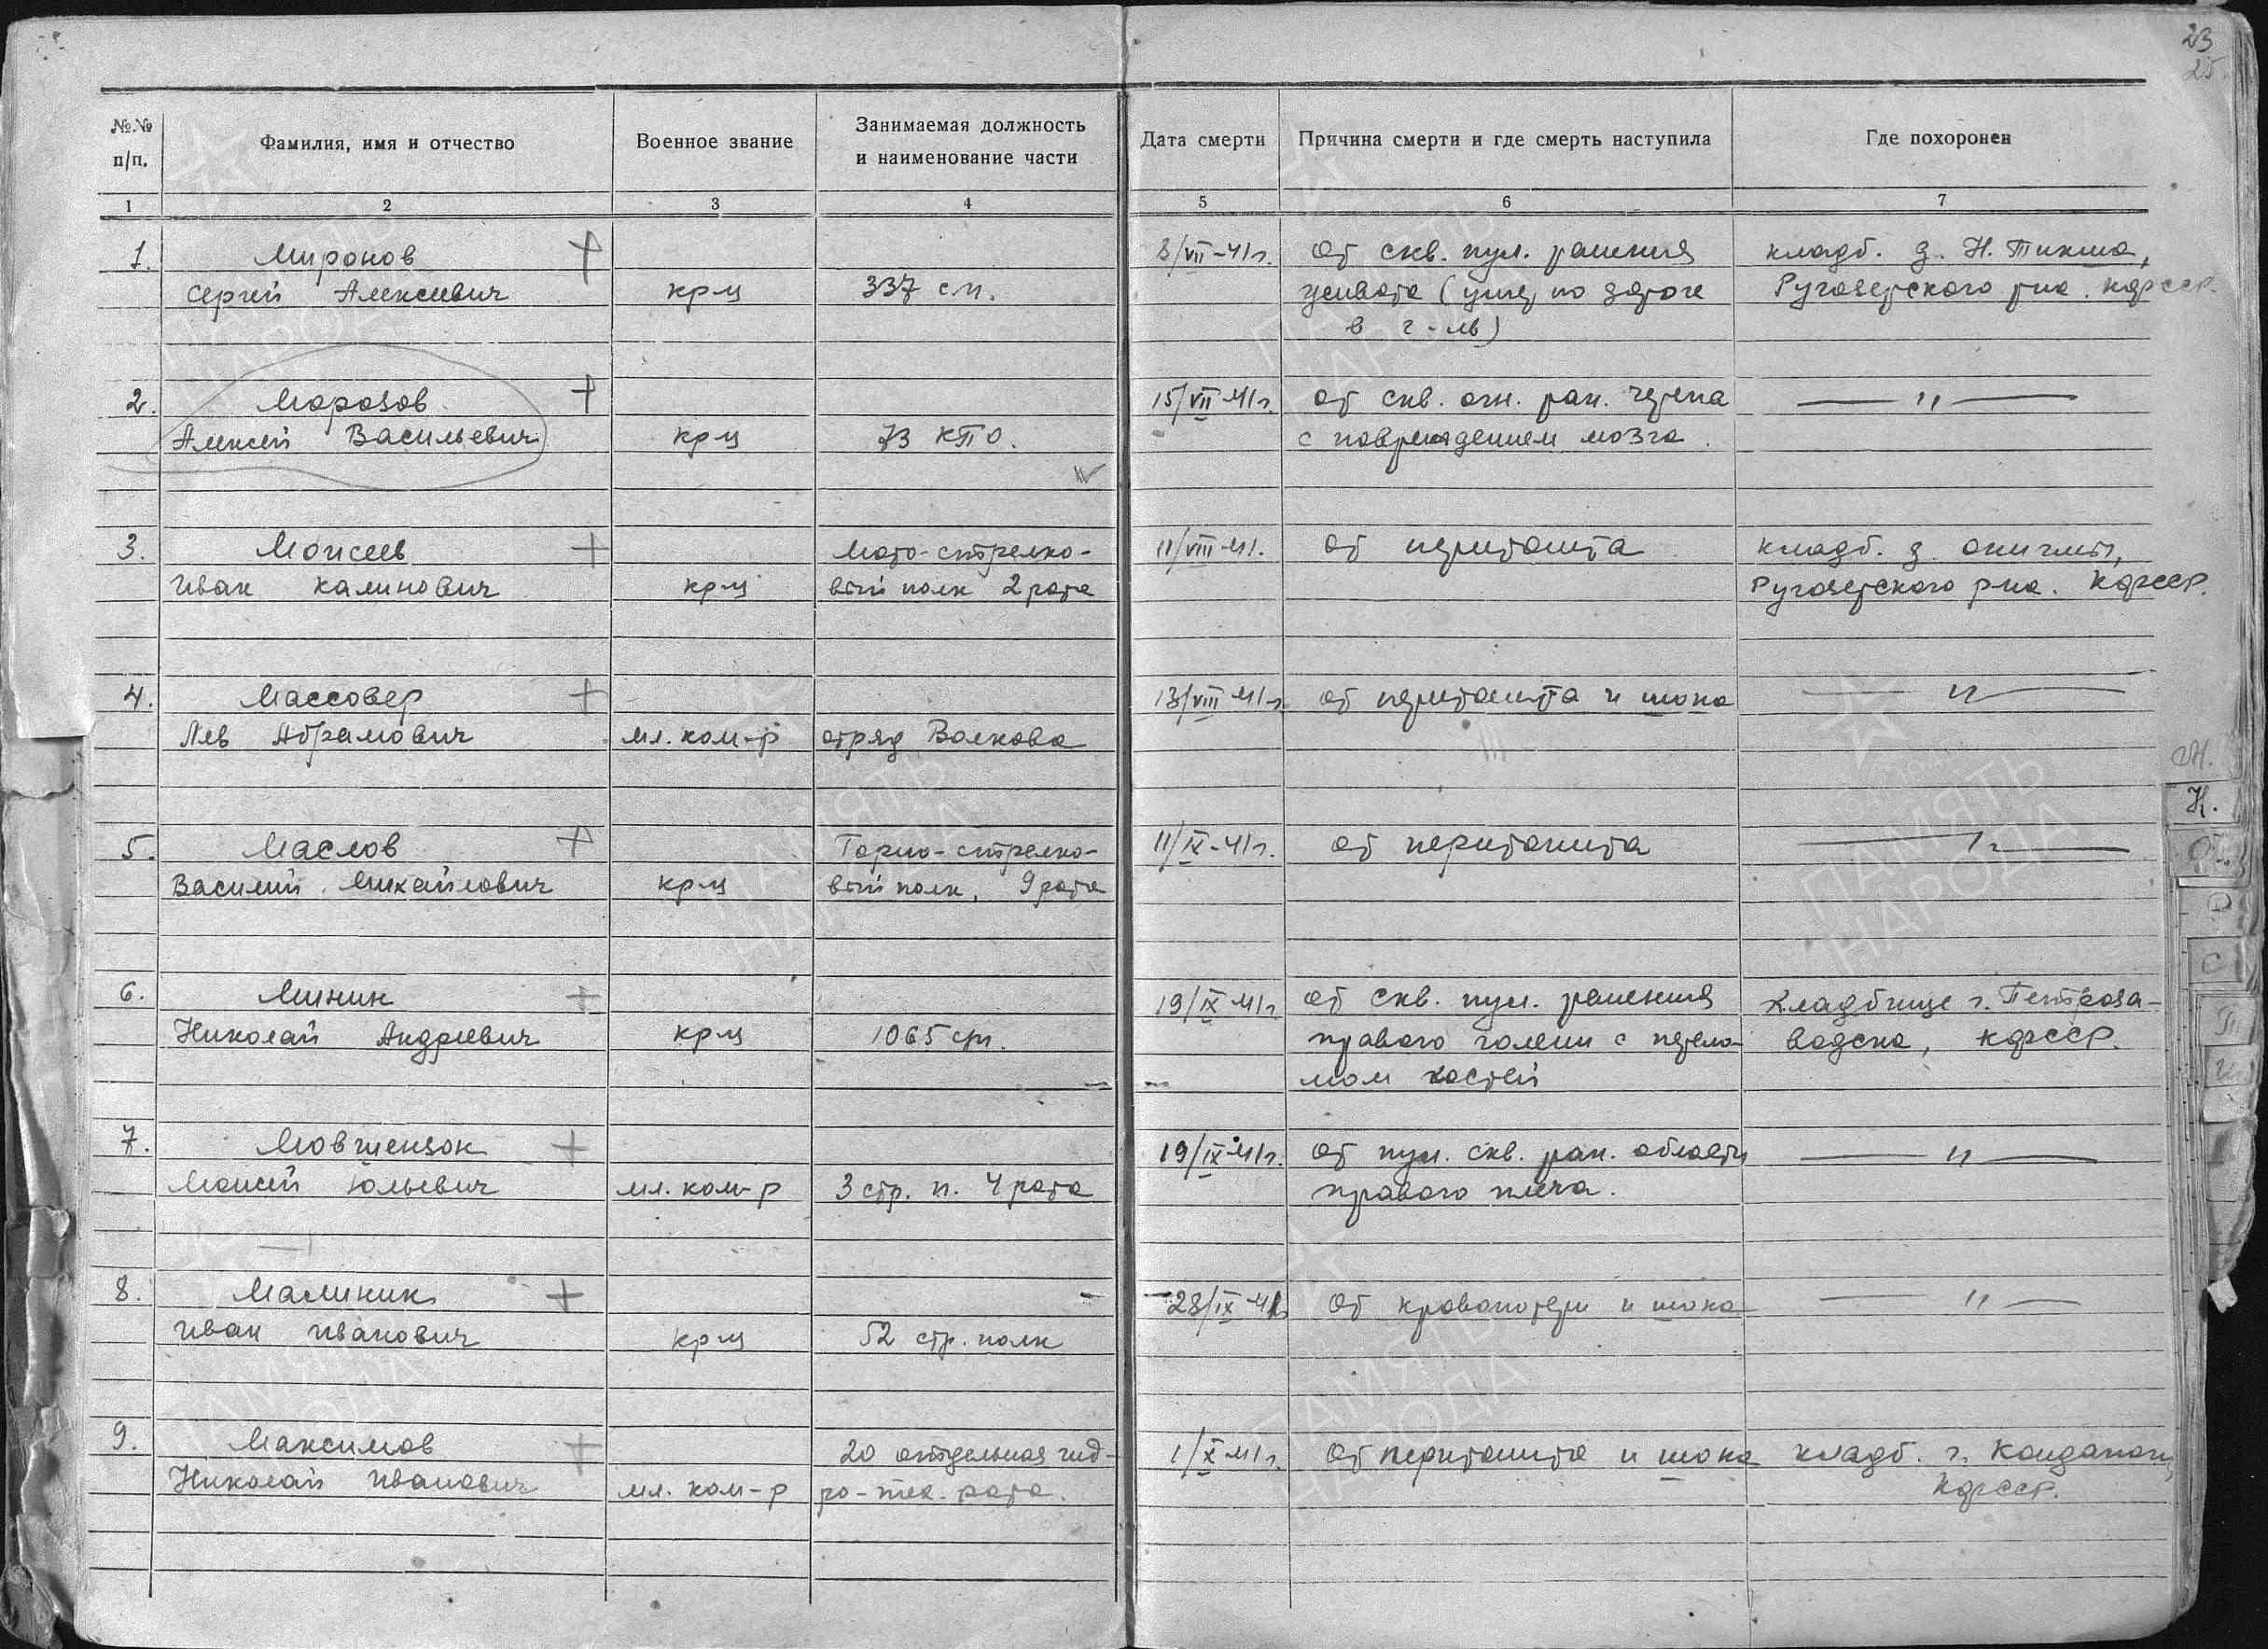 23
25
№.№ п/п.
Фамилия, имя и отчество
Военное звание
Занимаемая должность
и наименование части
Дата смерти
Причина смерти и где смерть наступила
Где похоронен
1 2 3 4 5 6 7
1. Миронов 8/VII-41г. от скв. пул. ранения кладб. д. Н. Тикша,
Сергей Алексеевич кр-ц 337 с.п. живота (умер по дороге Ругозерского р-на. КФССР.
в г-ль)
2. Морозов 15/VII-41г. от скв. огн. ран. черепа — " —
Алексей Васильевич кр-ц 73 КПО. с повреждением мозга.
3. Моисеев Мото-стрелко- 11/VIII-41. от перитонита кладб. д.
Иван Калинович кр-ц вый полк 2 рота Ругозерского р-на. КФССР.
4. Массовер 13/VIII-41г. от перитонита и шока — " —
Лев Абрамович мл. ком-р отряд Волкова
5. Маслов Горно-стрелко- 11/IX-41г. от перитонита — " —
Василий Михайлович кр-ц вый полк, 9 рота
6. Минин 19/IX-41г. от скв. пул. ранения Кладбище г. Петроза-
Николай Андреевич кр-ц 1065 сп. правого голени с перело- водска, КФССР.
мом костей
7. 19/IX-41г. от пул. скв. ран. области — " —
Моисей Юльевич мл. ком-р 3 стр. п. 4 рота правого плеча.
8. Малинин 28/IX-41г. от кровопотери и шока — " —
Иван Иванович кр-ц 52 стр. полк
9. Максимов 20 отдельная гид- 1/X-41г. от перитонита и шока кладб. г. Кондапоги
Николай Иванович мл. ком-р ро-тех. рота. КФССР.
М.
Н.
О.
Р
С
Т
ПАМЯТЬ
НАРОДА